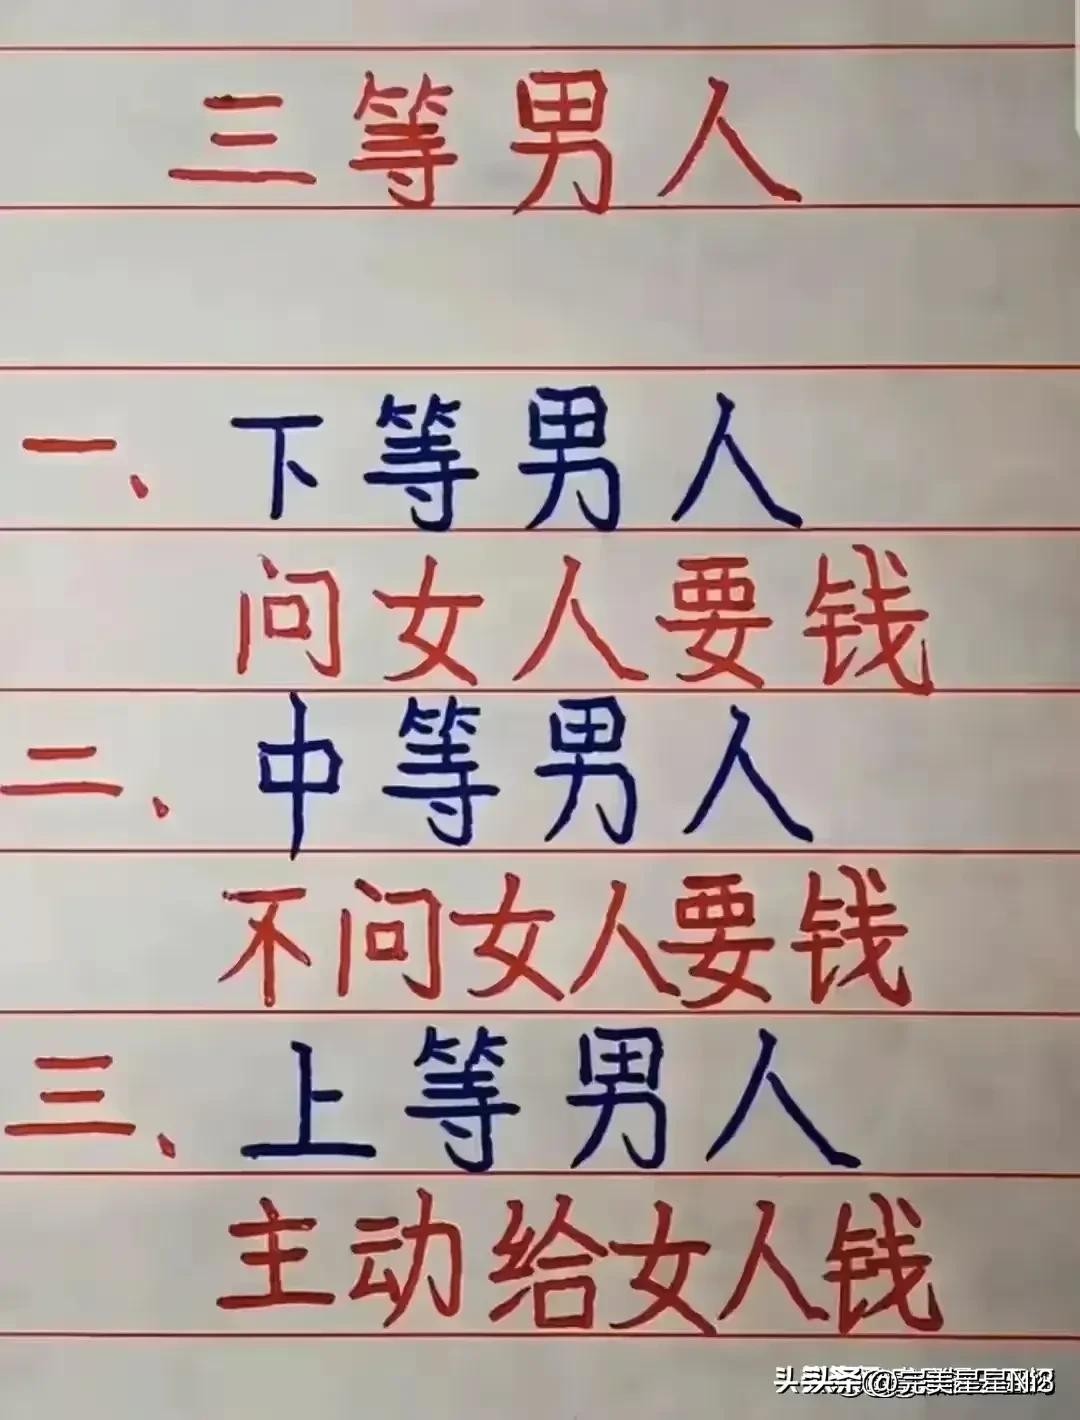 三等男人
一、下等男人
问女人要钱
二、中等男人
不问女人要钱
三、上等男人
主动给女人钱
头条@完美星星